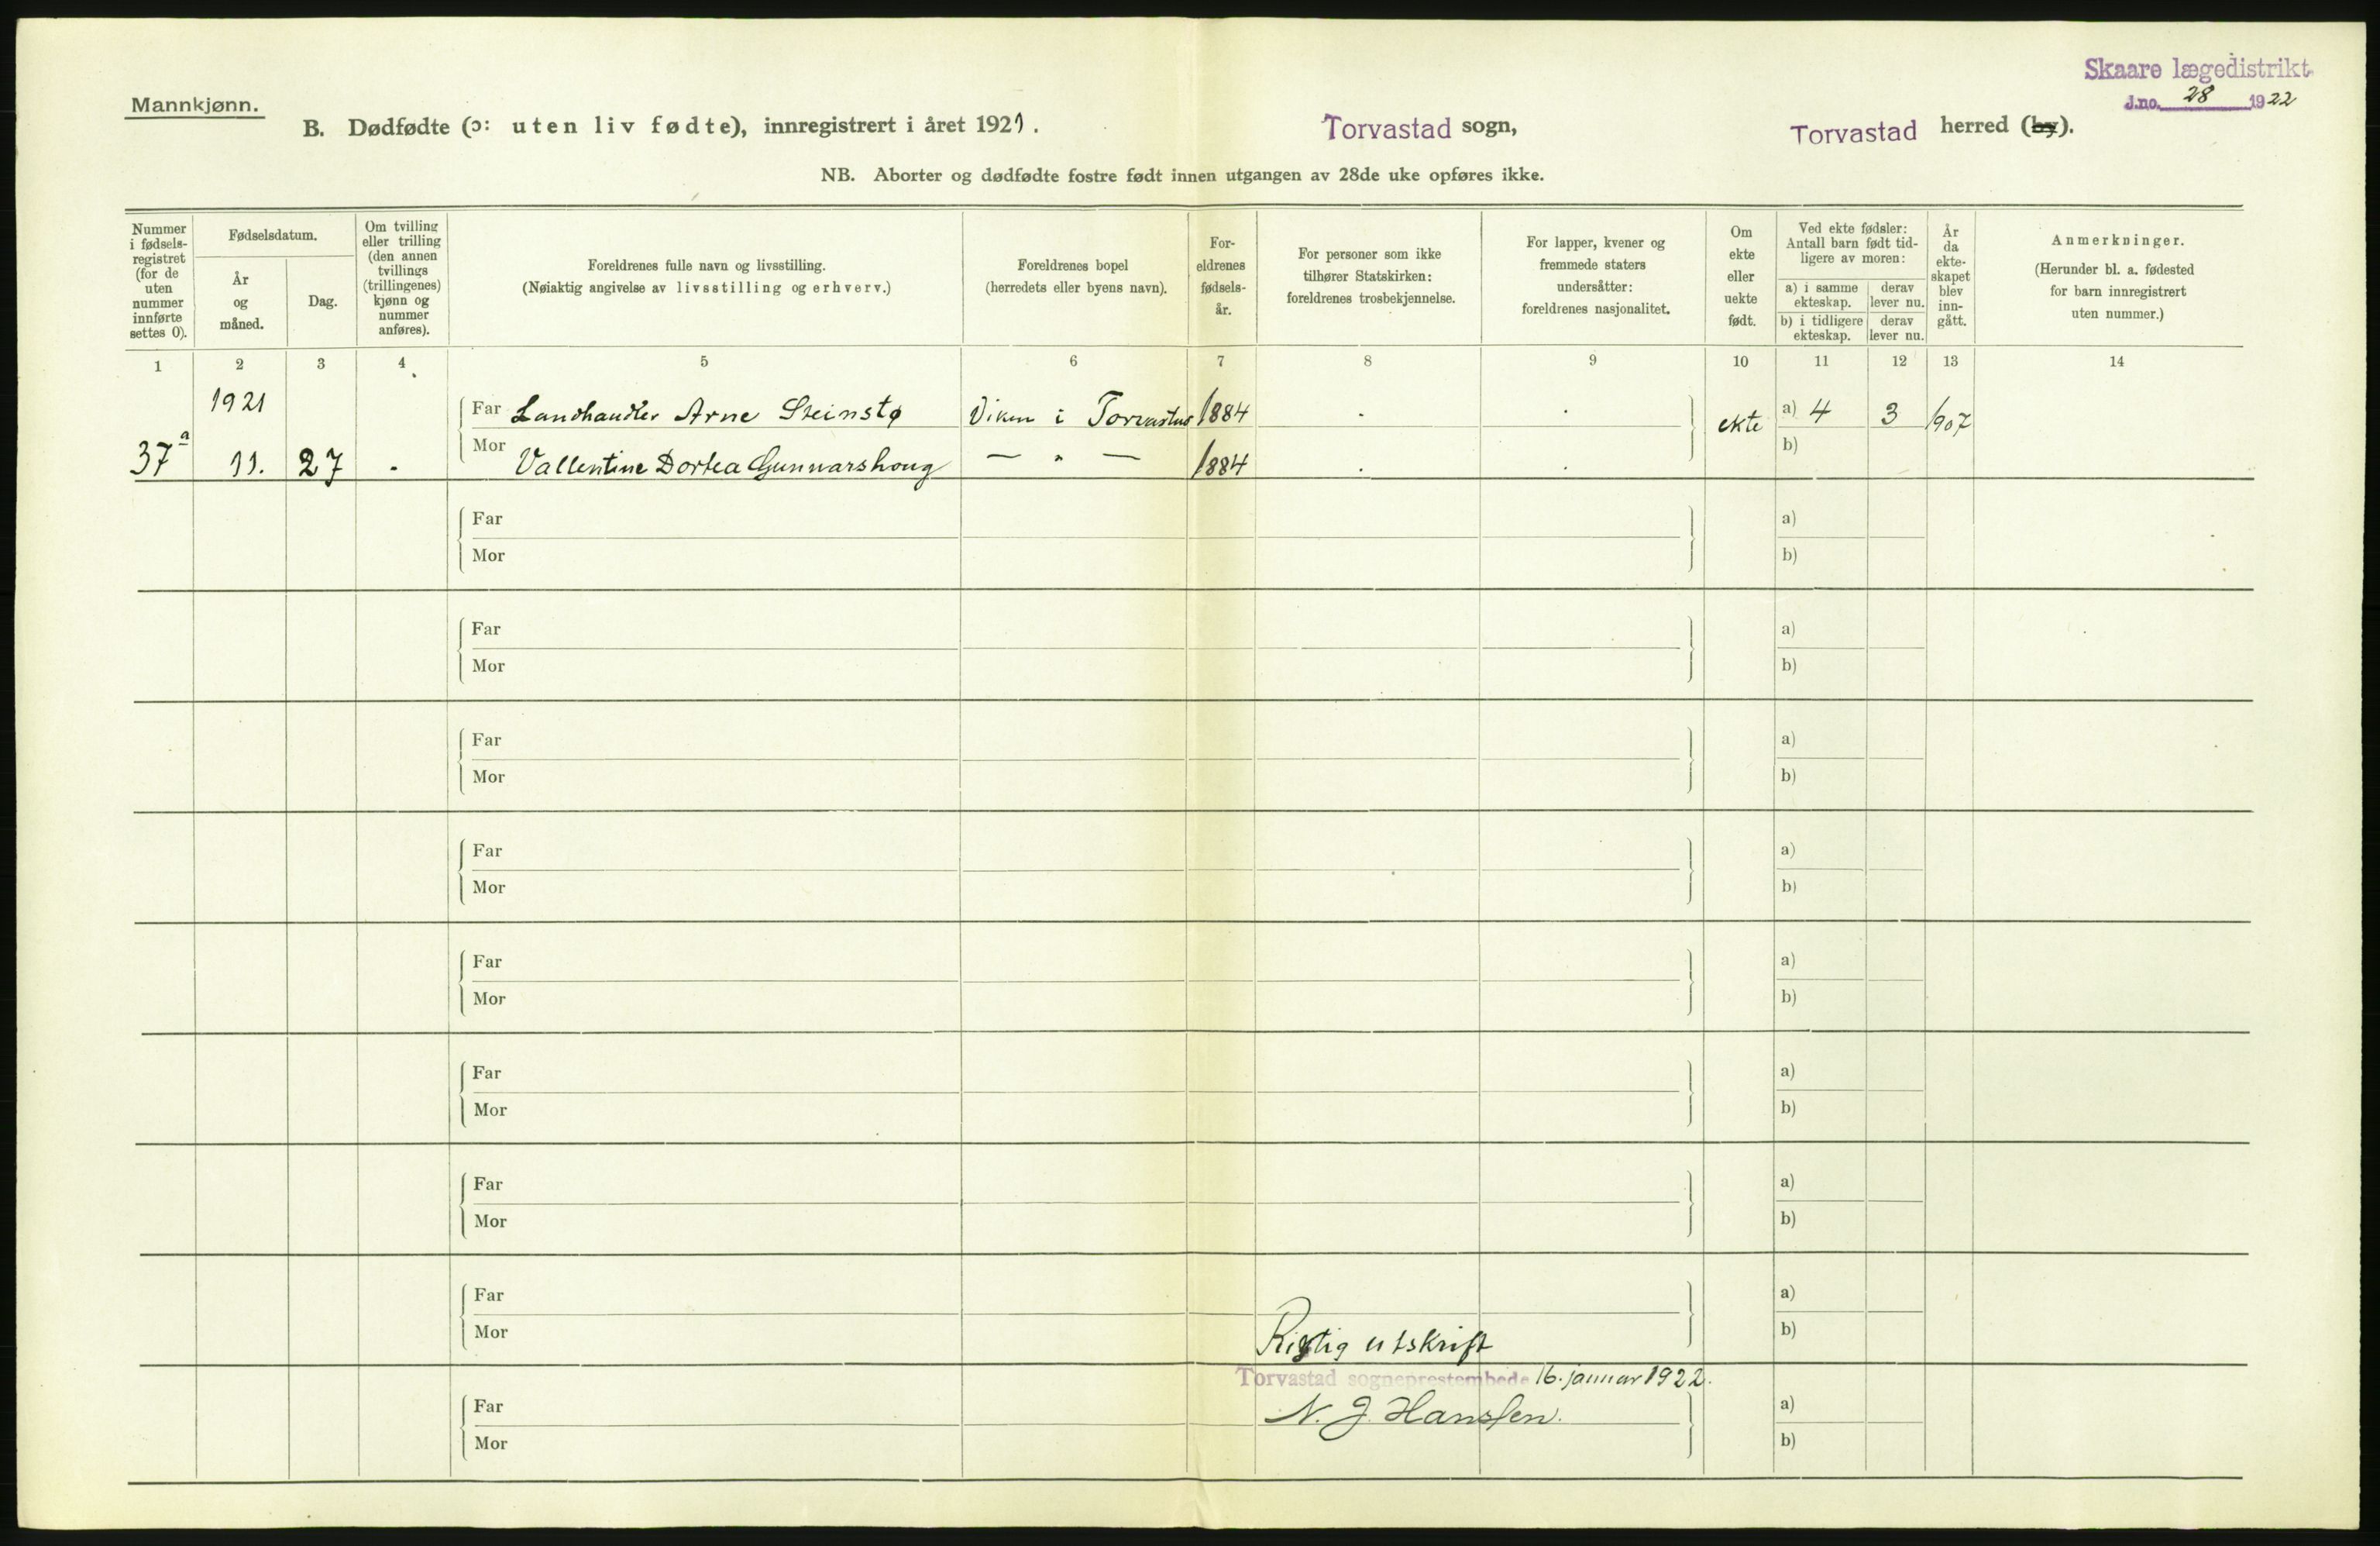 Skaare lægedistrikt
J.no. 28 1922
Mannkjønn.
B. Dødfødte (ɔ: uten liv fødte), innregistrert i året 1921. Torvastad sogn, Torvastad herred (by).
NB. Aborter og dødfødte fostre født innen utgangen av 28de uke opføres ikke.
Nummer i fødsels-registret (for de uten nummer innførte settes 0).
Fødselsdatum.
År og måned.
Dag.
Om tvilling eller trilling (den annen tvillings (trillingenes) kjønn og nummer anføres).
Foreldrenes fulle navn og livsstilling.
(Nøiaktig angivelse av livsstilling og erhverv.)
Foreldrenes bopel
(herredets eller byens navn).
For-eldrenes fødsels-år.
For personer som ikke tilhører Statskirken: foreldrenes trosbekjennelse.
For lapper, kvener og fremmede staters undersåtter: foreldrenes nasjonalitet.
Om ekte eller uekte født.
Ved ekte fødsler: Antall barn født tid-ligere av moren:
a) i samme ekteskap.
derav lever nu.
b) i tidligere ekteskap.
derav lever nu.
År da ekte-skapet blev inn-gått.
Anmerkninger.
(Herunder bl. a. fødested for barn innregistrert uten nummer.)
1 2 3 4 5 6 7 8 9 10 11 12 13 14
1921
Far Landhandler Arne Steinstø Viken i Torvastad 1884 ekte a) 4 3 1907
37a 11. 27 Mor Vallentine Dortea Gunnarshoug — " — 1884 b)
Far a)
Mor b)
Far a)
Mor b)
Far a)
Mor b)
Far a)
Mor b)
Far a)
Mor b)
Far a)
Mor b)
Far a)
Mor b)
Far a)
Mor b)
Rigtig utskrift
Torvastad sogneprestembede 16. januar 1922.
Far a)
N. J. Hanssen.
Mor b)